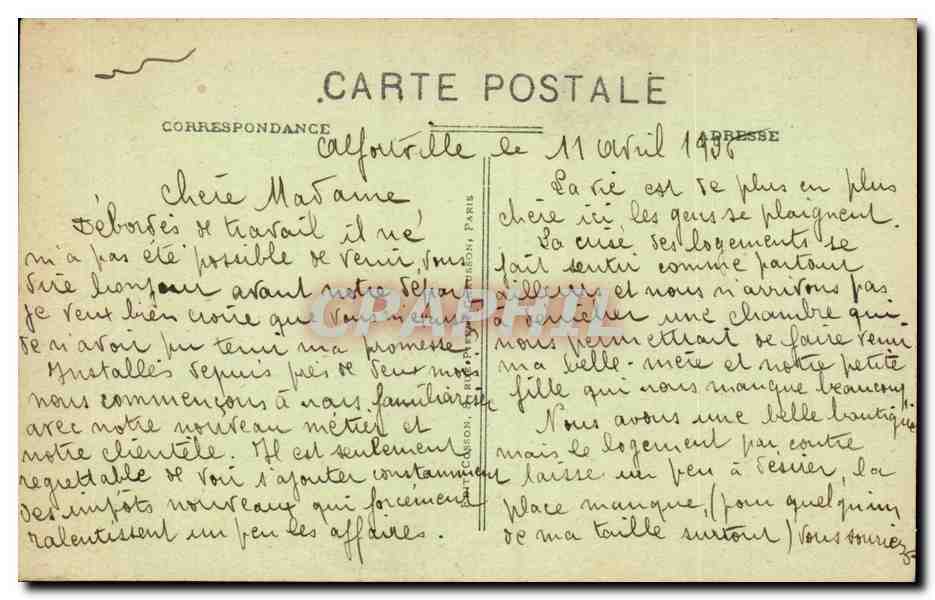 CARTE POSTALE
CORRESPONDANCE
ADRESSE
Alfortville le 11 avril 1938
Chère Madame
Débordés de travail il ne
m'a pas été possible de venir vous
dire bonjour avant notre départ.
Je veux bien croire que vous m'excusez
de n'avoir pu tenir ma promesse.
Installés depuis près de deux mois
nous commençons à nous familiariser
avec notre nouveau métier et
notre clientèle. Il est seulement
regrettable de voir s'ajouter constamment
des impôts nouveaux qui forcément
ralentissent un peu les affaires.
La vie est de plus en plus
chère ici les gens se plaignent.
La crise des logements se
fait sentir comme partout
ailleurs et nous n'arrivons pas
à dénicher une chambre qui
nous permettrait de faire venir
ma belle-mère et notre petite
fille qui nous manque beaucoup
Nous avons une belle boutique
mais le logement par contre
laisse un peu à désirer, la
place manque, (pour quelqu'un
de ma taille surtout) vous souriez
COSSON, PARIS
CPAPHIL